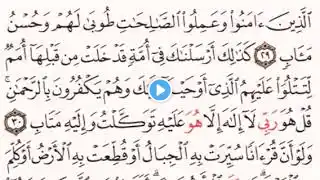 الَّذِينَ ءَامَنُوا۟ وَعَمِلُوا۟ الصَّٰلِحَٰتِ طُوبَىٰ لَهُمْ وَحُسْنُ
مَـَٔابٍ ٢٩ كَذَٰلِكَ أَرْسَلْنَٰكَ فِىٓ أُمَّةٍ قَدْ خَلَتْ مِن قَبْلِهَآ أُمَمٌ
لِّتَتْلُوَا۟ عَلَيْهِمُ الَّذِىٓ أَوْحَيْنَآ إِلَيْكَ وَهُمْ يَكْفُرُونَ بِالرَّحْمَٰنِ ۚ
قُلْ هُوَ رَبِّى لَآ إِلَٰهَ إِلَّا هُوَ عَلَيْهِ تَوَكَّلْتُ وَإِلَيْهِ مَتَابِ ٣٠
وَلَوْ أَنَّ قُرْءَانًا سُيِّرَتْ بِهِ الْجِبَالُ أَوْ قُطِّعَتْ بِهِ الْأَرْضُ أَوْ كُلِّمَ